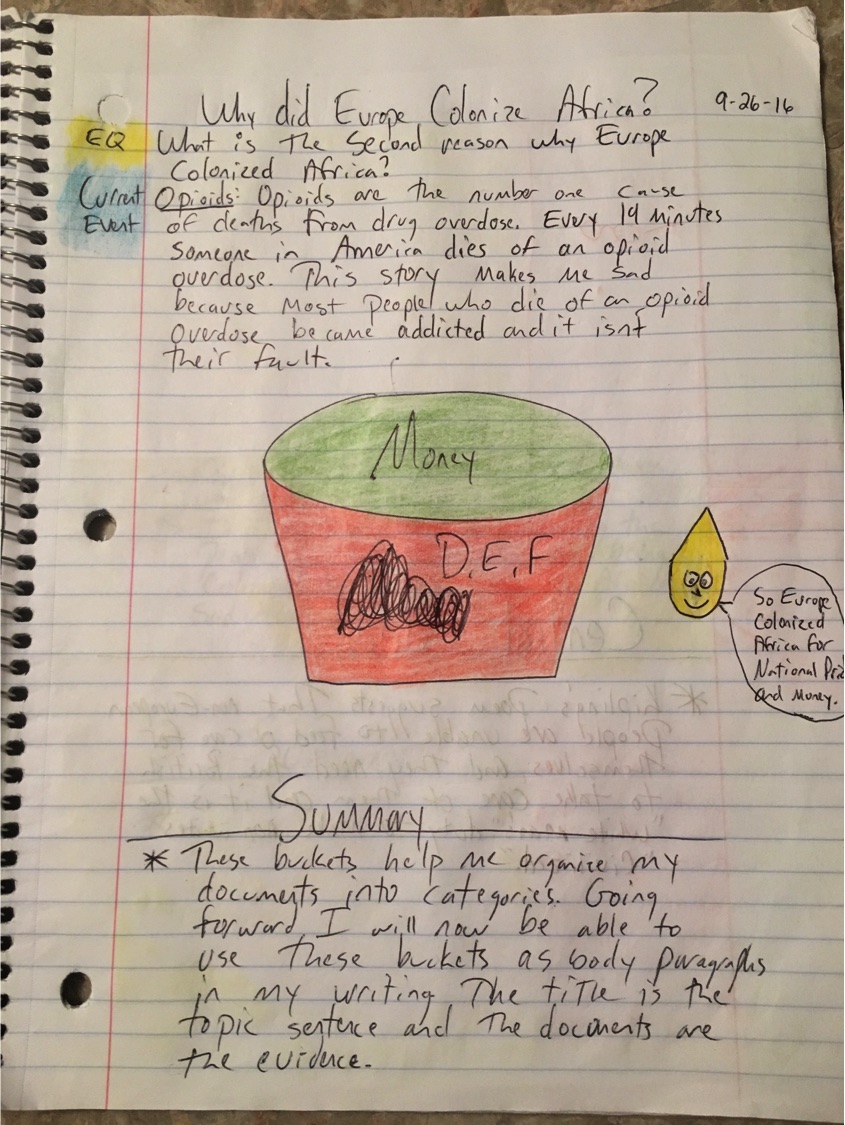 Why did Europe Colonize Africa?
9-26-16
EQ
What is the second reason why Europe
Colonized Africa?
Current
Event
Opioids: Opioids are the number one cause
of deaths from drug overdose. Every 19 minutes
someone in America dies of an opioid
overdose. This story makes me sad
because most people who die of an opioid
overdose became addicted and it isnt
their fault.
Money
D, E, F
So Europe
Colonized
Africa for
National Pri
and Money.
Summary
* These buckets help me organize my
documents into categories. Going
forward, I will now be able to
use these buckets as body paragraphs
in my writing. The title is the
topic sentence and the documents are
the evidence.